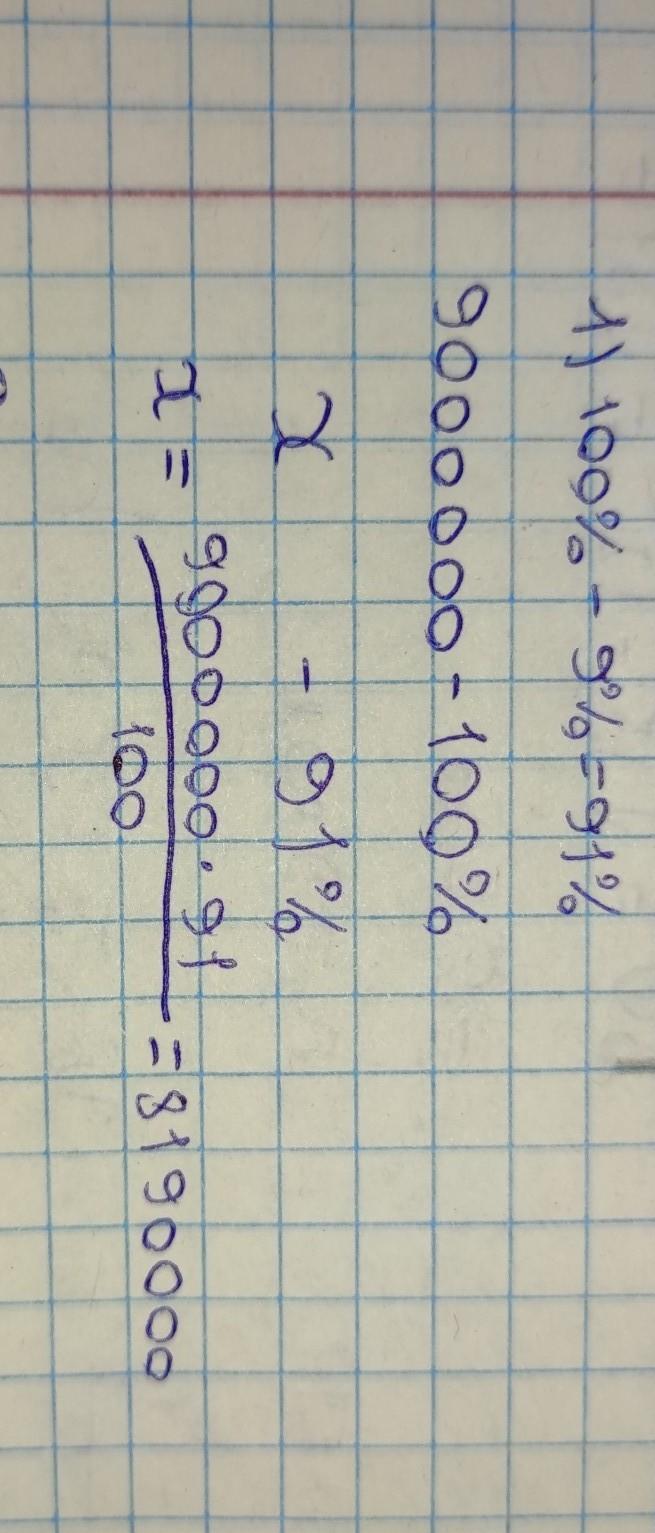 1) 100% - 9% = 91%
9000000 - 100%
x - 91%
x = 9900000 · 91 / 100 = 8190000